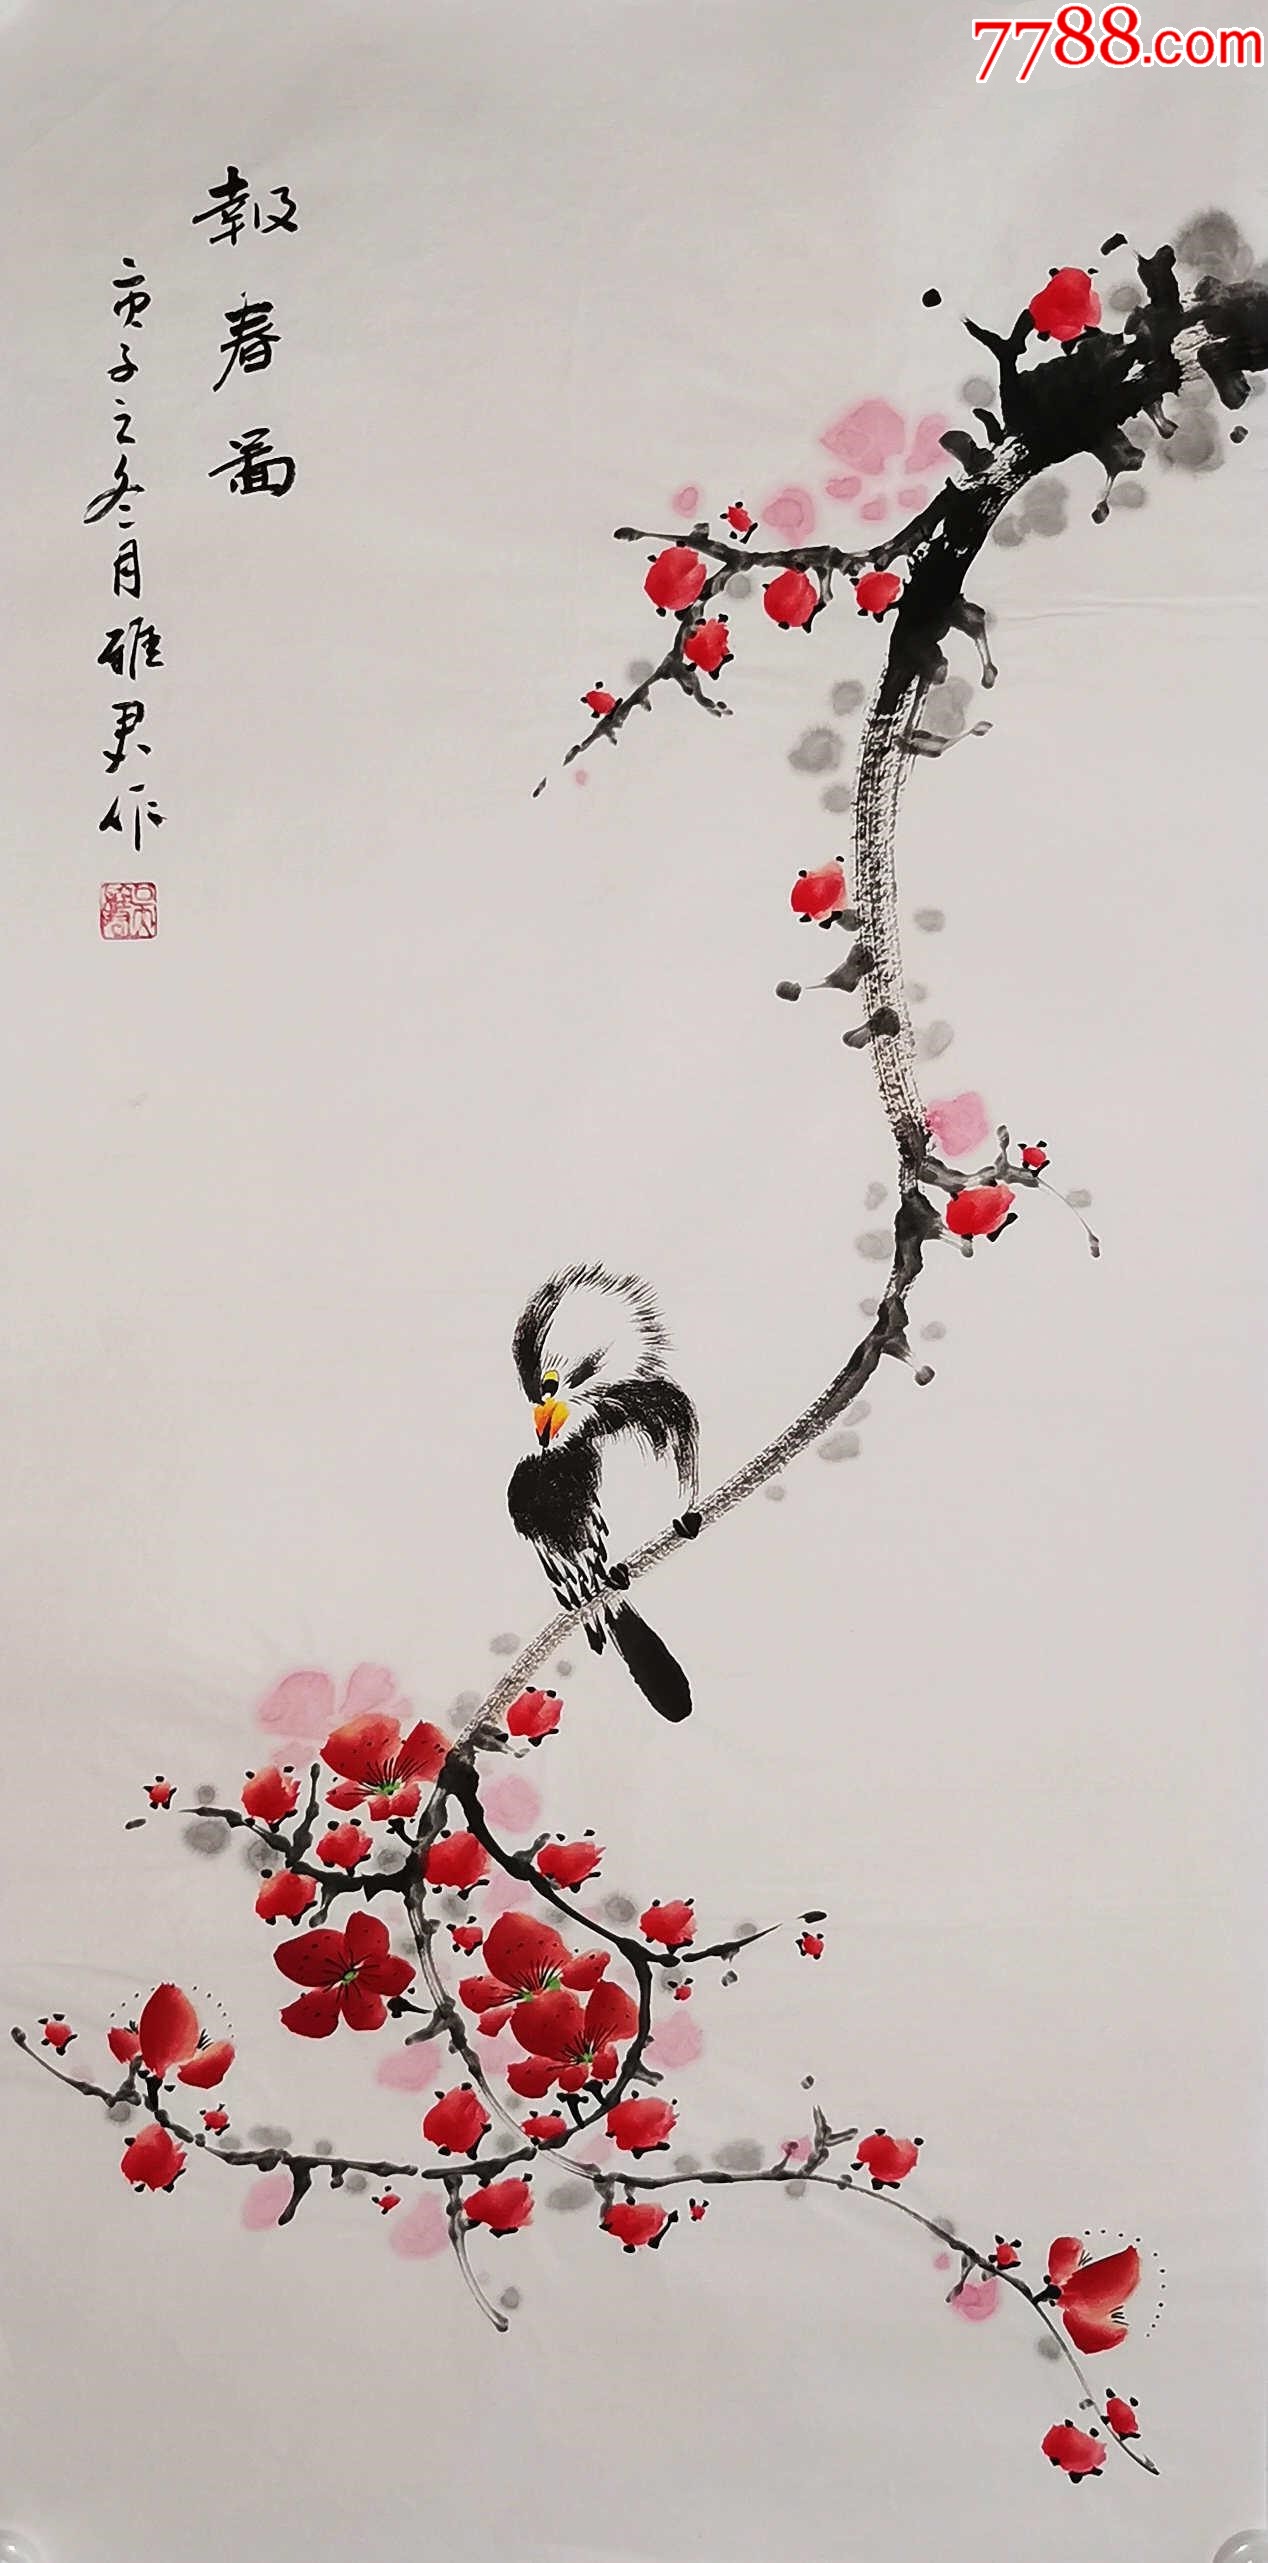 7788.com
報春圖
庚子之冬月雅君作